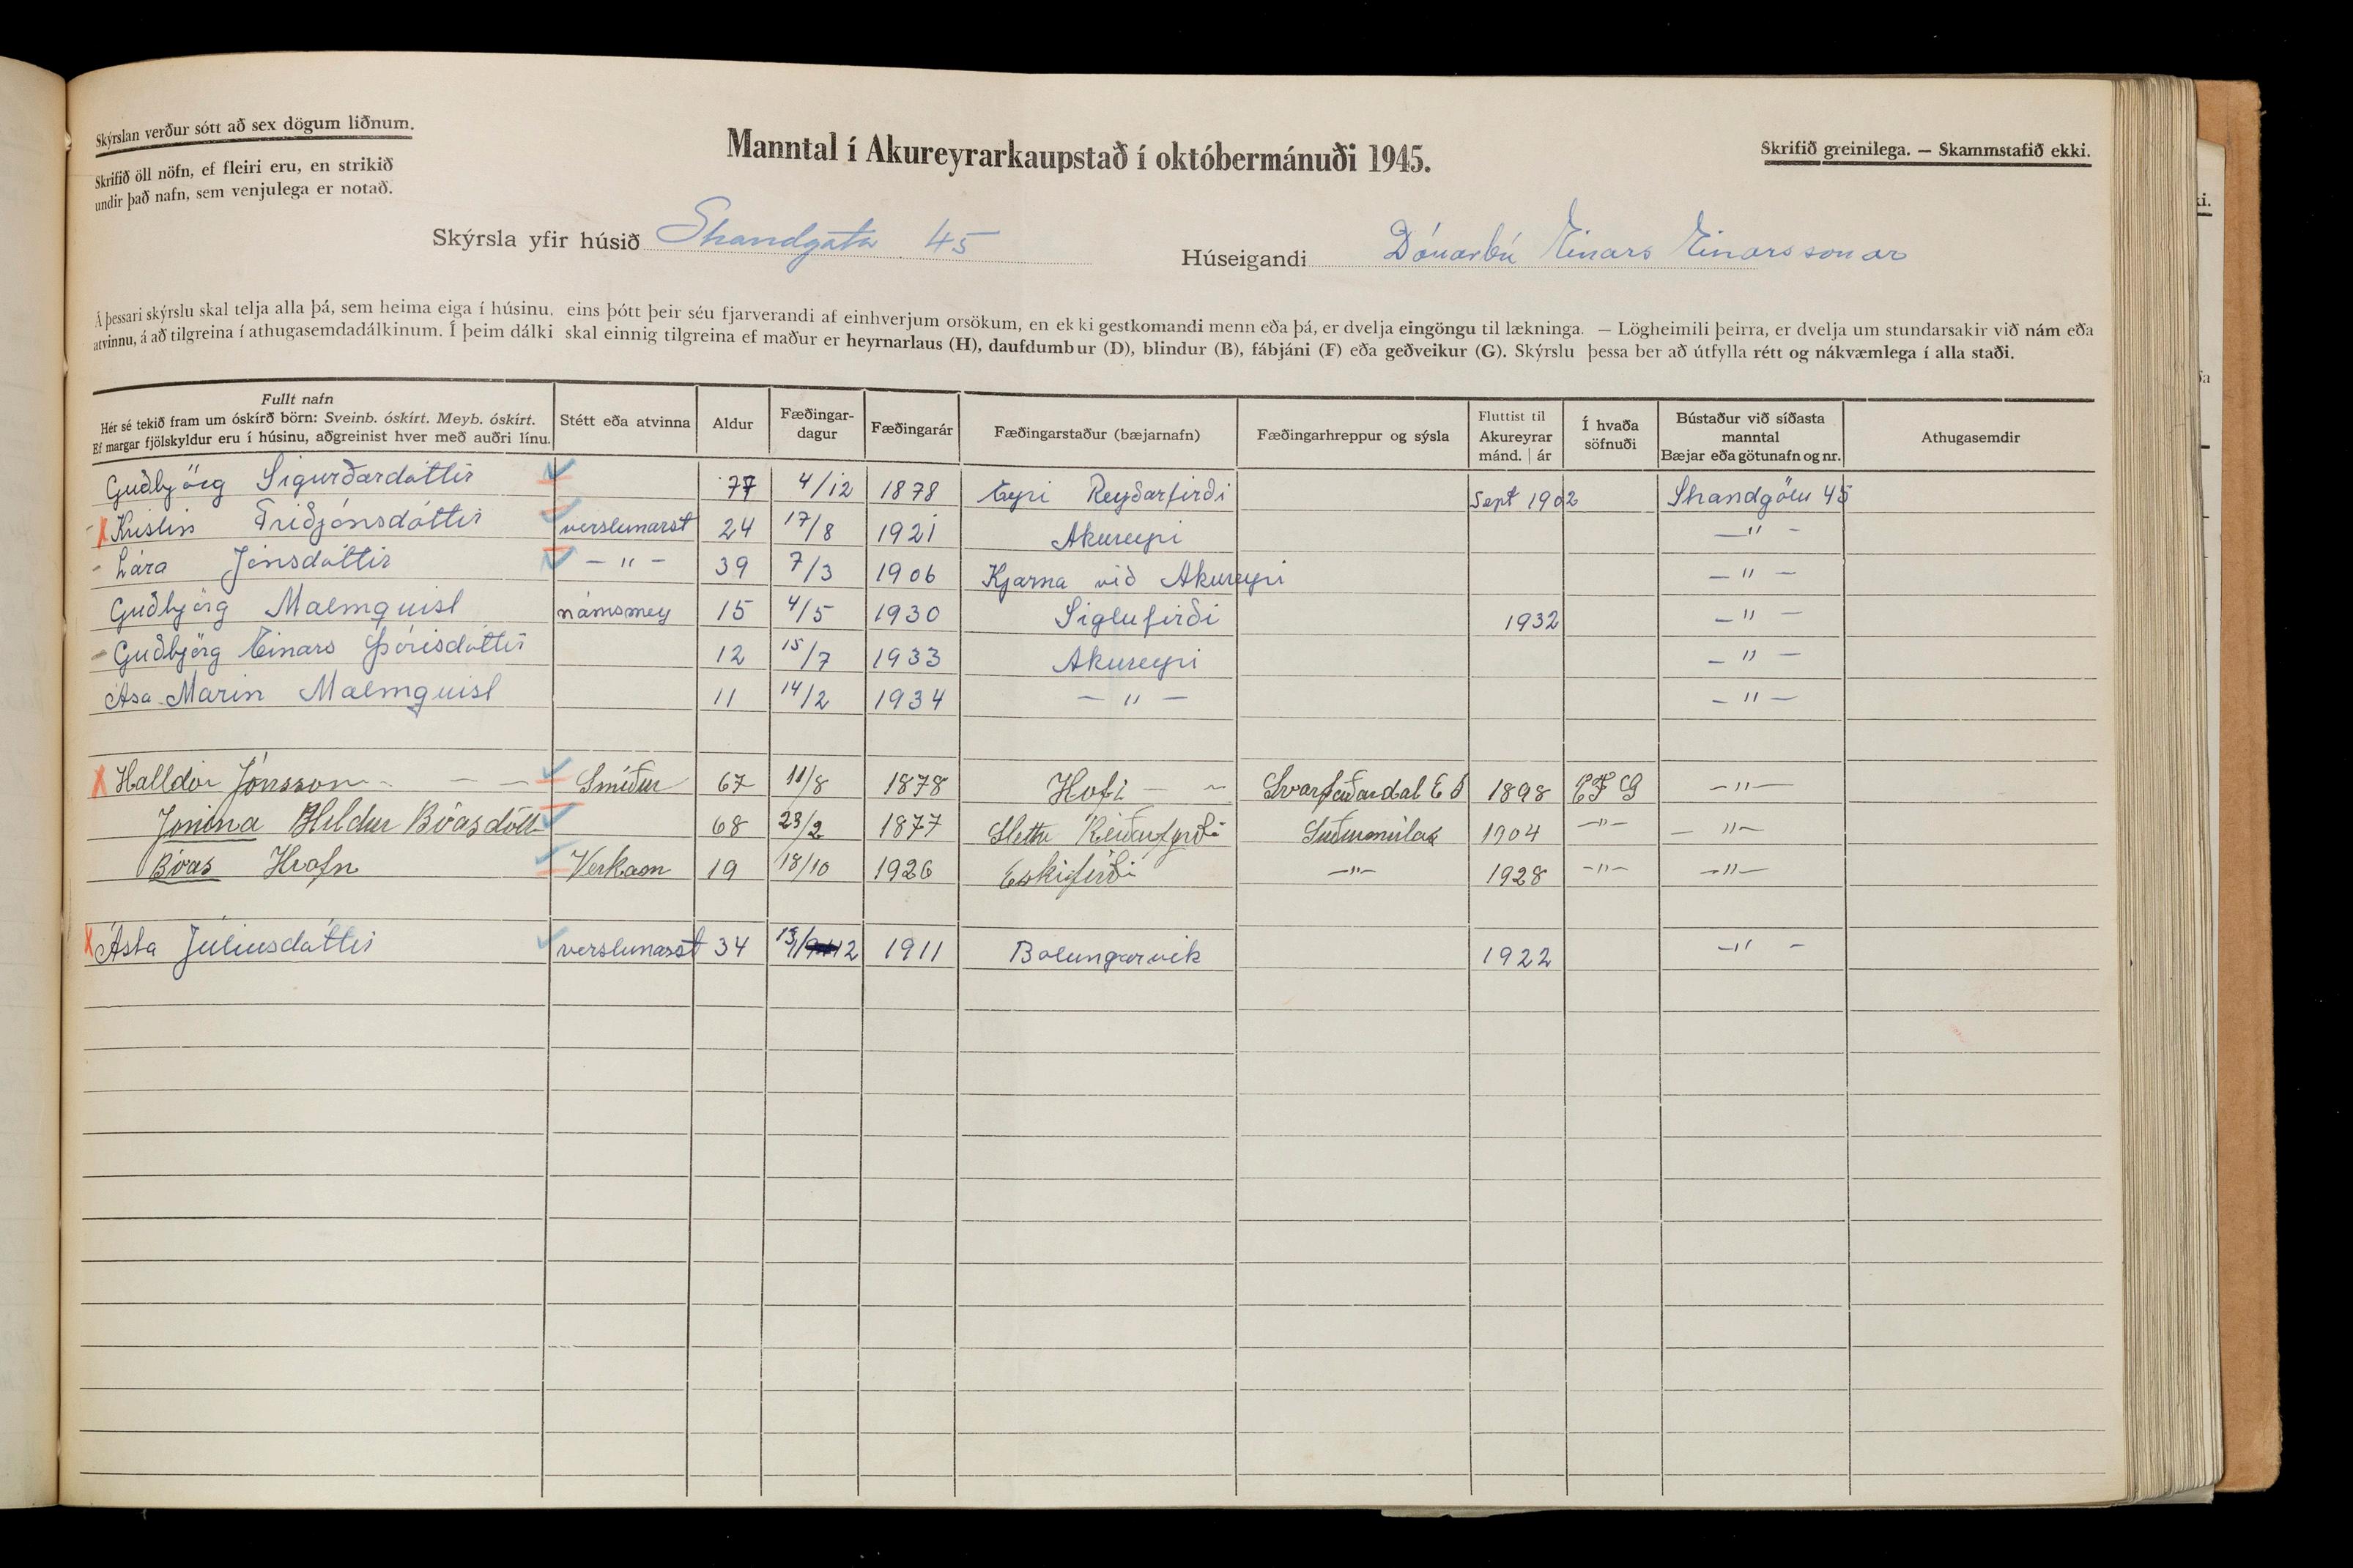 Skýrslan verður sótt að sex dögum liðnum.
Skrifið öll nöfn, ef fleiri eru, en strikið
undir það nafn, sem venjulega er notað.
Manntal í Akureyrarkaupstað í októbermánuði 1945.
Skrifið greinilega. — Skammstafið ekki.
Skýrsla yfir húsið Strandgata 45
Húseigandi Dánarbú Einars Einarssonar
Á þessari skýrslu skal telja alla þá, sem heima eiga í húsinu, eins þótt þeir séu fjarverandi af einhverjum orsökum, en ekki gestkomandi menn eða þá, er dvelja eingöngu til lækninga. — Lögheimili þeirra, er dvelja um stundarsakir við nám eða
atvinnu, á að tilgreina í athugasemdadálkinum. Í þeim dálki skal einnig tilgreina ef maður er heyrnarlaus (H), daufdumbur (D), blindur (B), fábjáni (F) eða geðveikur (G). Skýrslu þessa ber að útfylla rétt og nákvæmlega í alla staði.
Fullt nafn
Hér sé tekið fram um óskírð börn: Sveinb. óskírt. Meyb. óskírt.
Ef margar fjölskyldur eru í húsinu, aðgreinist hver með auðri línu.
Stétt eða atvinna
Aldur
Fæðingar-
dagur
Fæðingarár
Fæðingarstaður (bæjarnafn)
Fæðingarhreppur og sýsla
Fluttist til
Akureyrar
mánd. | ár
Í hvaða
söfnuði
Bústaður við síðasta
manntal
Bæjar eða götunafn og nr.
Athugasemdir
Guðbjörg Sigurðardóttir 77 4/12 1878 Eyri Reyðarfirði Sept 1902 Strandgötu 45
X Kristín Friðjónsdóttir verslunarst 24 17/8 1921 Akureyri — " —
- Lára Jónsdóttir — " — 39 7/3 1906 Kjarna við Akureyri — " —
Guðbjörg Malmquist námsmey 15 4/5 1930 Siglufirði 1932 — " —
- Guðbjörg Einars Þórisdóttir 12 15/7 1933 Akureyri — " —
Ása Marin Malmquist 11 14/2 1934 — " — — " —
X Halldór Jónsson — — Smiður 67 11/8 1878 Hofi — ~ Svarfaðardal E 1898 — " —
Jónína Hildur Bóasdótt 68 23/2 1877 Slettu Reiðarfyrði Suðurmúlas 1904 — " — — " —
Bóas Hrafn Verkam 19 18/10 1926 Eskifirði — " — 1928 — " — — " —
X Ásta Júlíusdóttir verslunarst 34 2 1911 Bolungarvík 1922 — " —